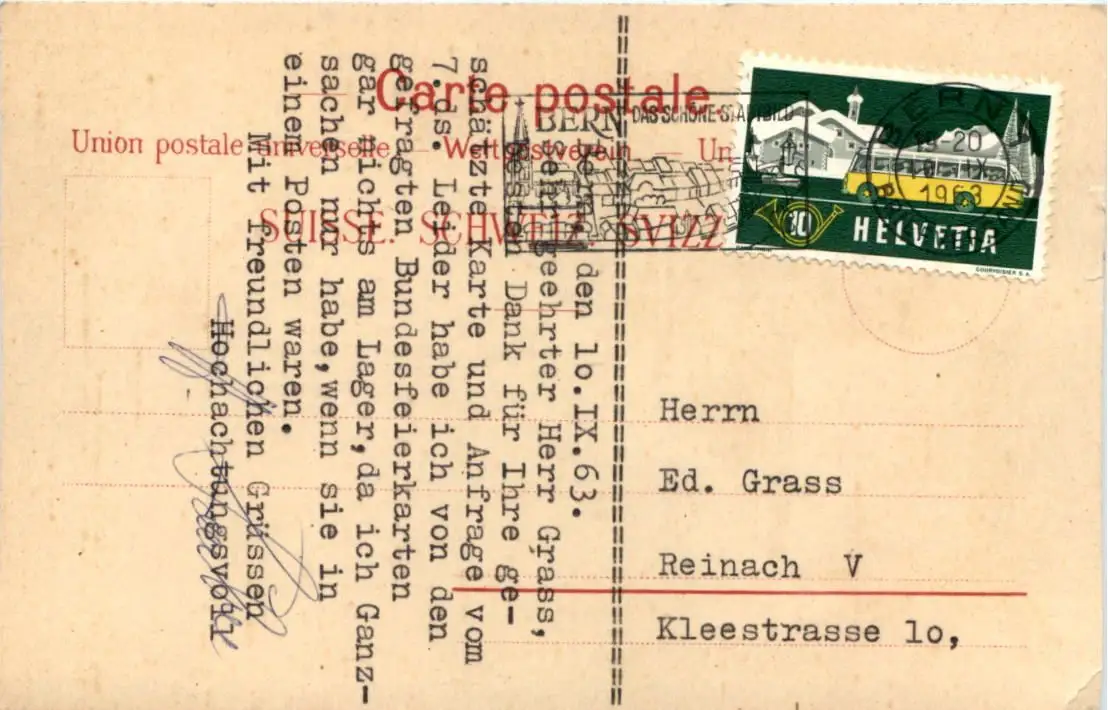 Carte postale.
Union postale universelle — Weltpostverein — Un
SUISSE. SCHWEIZ. SVIZZ
BERN DAS SCHÖNE STADTBILD
BERN
19-20
10. IX.
1963
10 HELVETIA
COURVOISIER S.A.
Bern, den 1o.IX.63.
Sehr geehrter Herr Grass,
Besten Dank für Ihre ge-
schätzte Karte und Anfrage vom
7.ds. Leider habe ich von den
gefragten Bundesfeierkarten
gar nichts am Lager,da ich Ganz-
sachen nur habe,wenn sie in
einem Posten waren.
Mit freundlichen Grüssen
Hochachtungsvoll
Herrn
Ed. Grass
Reinach V
Kleestrasse 1o,